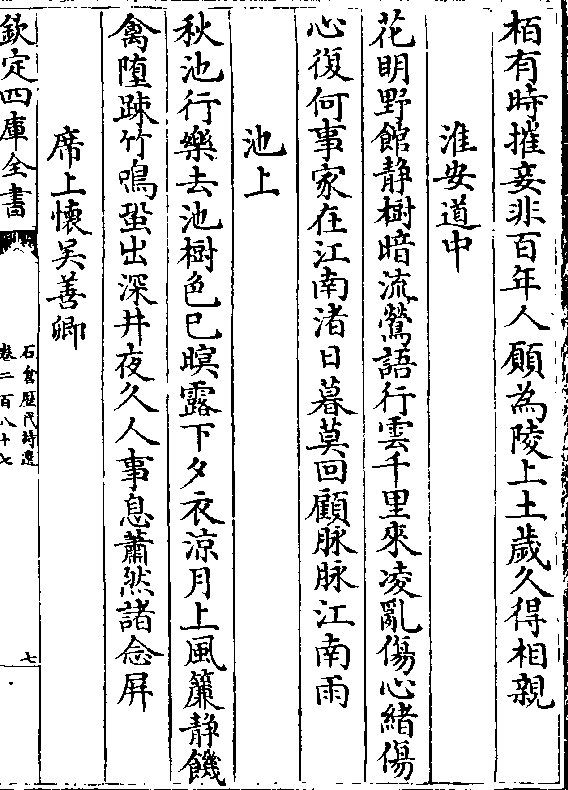 栢有時摧妾非百年人願為陵上土歲久得相親
淮安道中
花明野館静樹暗流鶯語行雲千里來凌亂傷心緒傷
心復何事家在江南渚日暮莫回顧脉脉江南雨
池上
秋池行樂去池樹色已暝露下夕衣涼月上風簾静饑
禽墮疎竹鳴蛩出深井夜久人事息蕭然諸念屏
席上懷吴善卿
欽定四庫全書
石倉歷代詩選
卷二百八十七
七